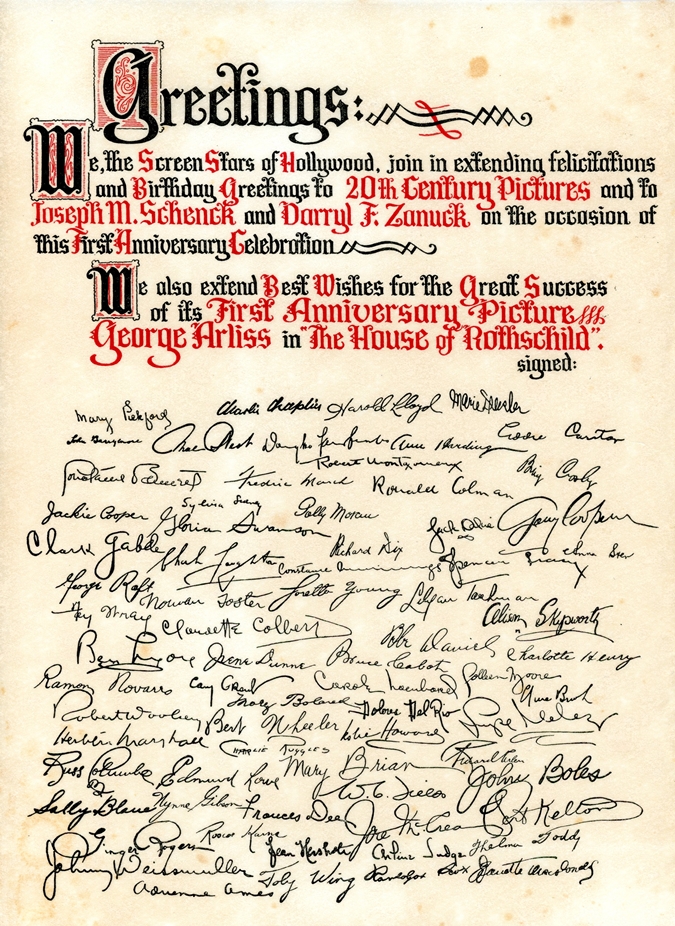 Greetings:
We, the Screen Stars of Hollywood, join in extending felicitations
and Birthday Greetings to 20th Century Pictures and to
Joseph M. Schenck and Darryl F. Zanuck on the occasion of
this First Anniversary Celebration
We also extend Best Wishes for the Great Success
of its First Anniversary Picture
George Arliss in "The House of Rothschild".
signed:
Mary Pickford Charlie Chaplin Harold Lloyd Marie Dressler
Douglas Fairbanks Ann Harding Eddie Cantor
Robert Montgomery Bing Crosby
Constance Bennett Fredric March Ronald Colman
Sylvia Sidney
Jackie Cooper Gloria Swanson Polly Moran Jack Oakie Gary Cooper
Clark Gable Richard Dix
Constance Cummings Spencer Tracy Anna Sten
George Raft Norman Foster Loretta Young Lilyan Tashman
Fay Wray Claudette Colbert Alison Skipworth
Ben Lyon Irene Dunne Bruce Cabot Bebe Daniels Charlotte Henry
Ramon Novarro Cary Grant Carole Lombard Colleen Moore
Mary Boland Dolores Del Rio
Robert Woolsey Bert Wheeler Leslie Howard Lupe Velez
Herbert Marshall Charlie Ruggles Mary Brian
Russ Columbo Edmund Lowe W. C. Fields John Boles
Sally Blane Wynne Gibson Frances Dee Joe McCrea
Ginger Rogers Roscoe Karns Jean Hersholt Arline Judge Thelma Todd
Johnny Weissmuller Toby Wing Randolph Scott Jeanette MacDonald
Adrienne Ames